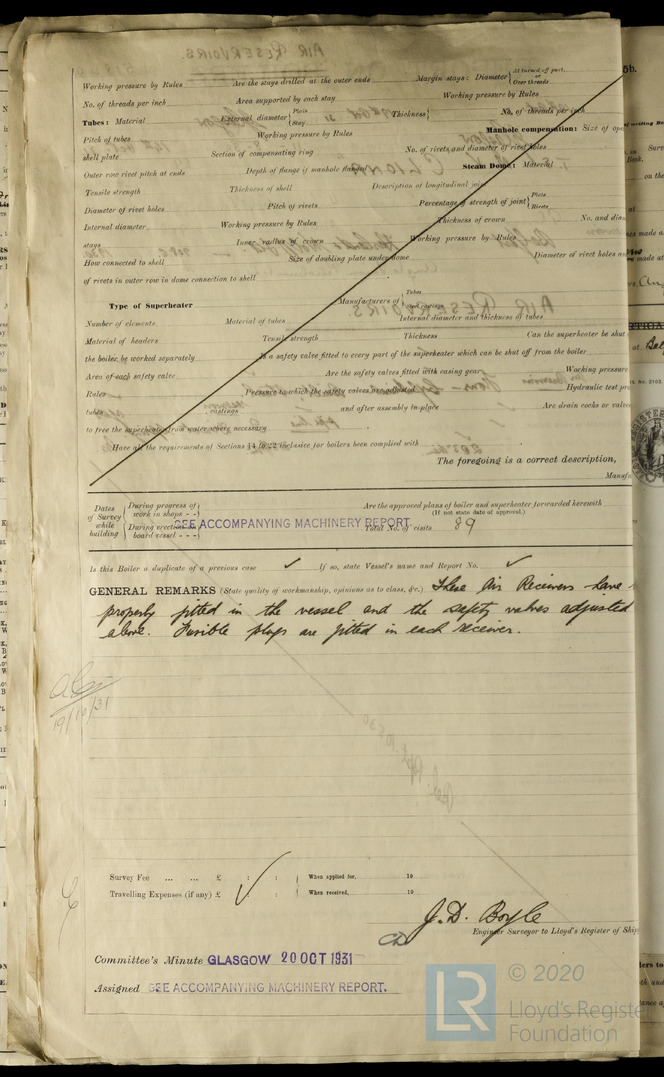 Working pressure by Rules Are the stays drilled at the outer ends Margin stays: Diameter { At turned off part, or Over threads
No. of threads per inch Area supported by each stay Working pressure by Rules
Tubes: Material External diameter { Plain Stay Thickness { No. of threads per inch
Pitch of tubes Working pressure by Rules Manhole compensation: Size of
shell plate Section of compensating ring No. of rivets and diameter of rivet holes
Outer row rivet pitch at ends Depth of flange if manhole flanged Steam Dome: Material
Tensile strength Thickness of shell Description of longitudinal joint
Diameter of rivet holes Pitch of rivets Percentage of strength of joint { Plate Rivets
Internal diameter Working pressure by Rules Thickness of crown No. and
stays Inner radius of crown Working pressure by Rules
How connected to shell Size of doubling plate under dome Diameter of rivet holes
of rivets in outer row in dome connection to shell
Type of Superheater Manufacturers of { Tubes
Number of elements Material of tubes Internal diameter and thickness of tubes
Material of headers Tensile strength Thickness Can the superheater be shut
the boiler be worked separately Is a safety valve fitted to every part of the superheater which can be shut off from the boiler
Area of each safety valve Are the safety valves fitted with easing gear Working pressure
Rules Pressure to which the safety valves are adjusted Hydraulic test
tubes castings and after assembly in place Are drain cocks or valves
to free the superheater from water where necessary
Have all the requirements of Sections 14 to 22 inclusive for boilers been complied with
The foregoing is a correct description,
Dates of Survey while building { During progress of work in shops - - } Are the approved plans of boiler and superheater forwarded herewith
(If not state date of approval.)
During erection on board vessel - - - } SEE ACCOMPANYING MACHINERY REPORT. Total No. of visits 89
Is this Boiler a duplicate of a previous case ✓ If so, state Vessel's name and Report No. ✓
GENERAL REMARKS (State quality of workmanship, opinions as to class, &c.) These Air Receivers have
properly fitted in the vessel and the safety valves adjusted
above. Fusible plugs are fitted in each receiver.
19/10/31
Survey Fee ... ... £ : : When applied for, 19
Travelling Expenses (if any) £ : : When received, 19
J. D. Boyle
Engineer Surveyor to Lloyd's Register of
Committee's Minute GLASGOW 20 OCT 1931
Assigned SEE ACCOMPANYING MACHINERY REPORT.
LR © 2020
Lloyd's Register
Foundation